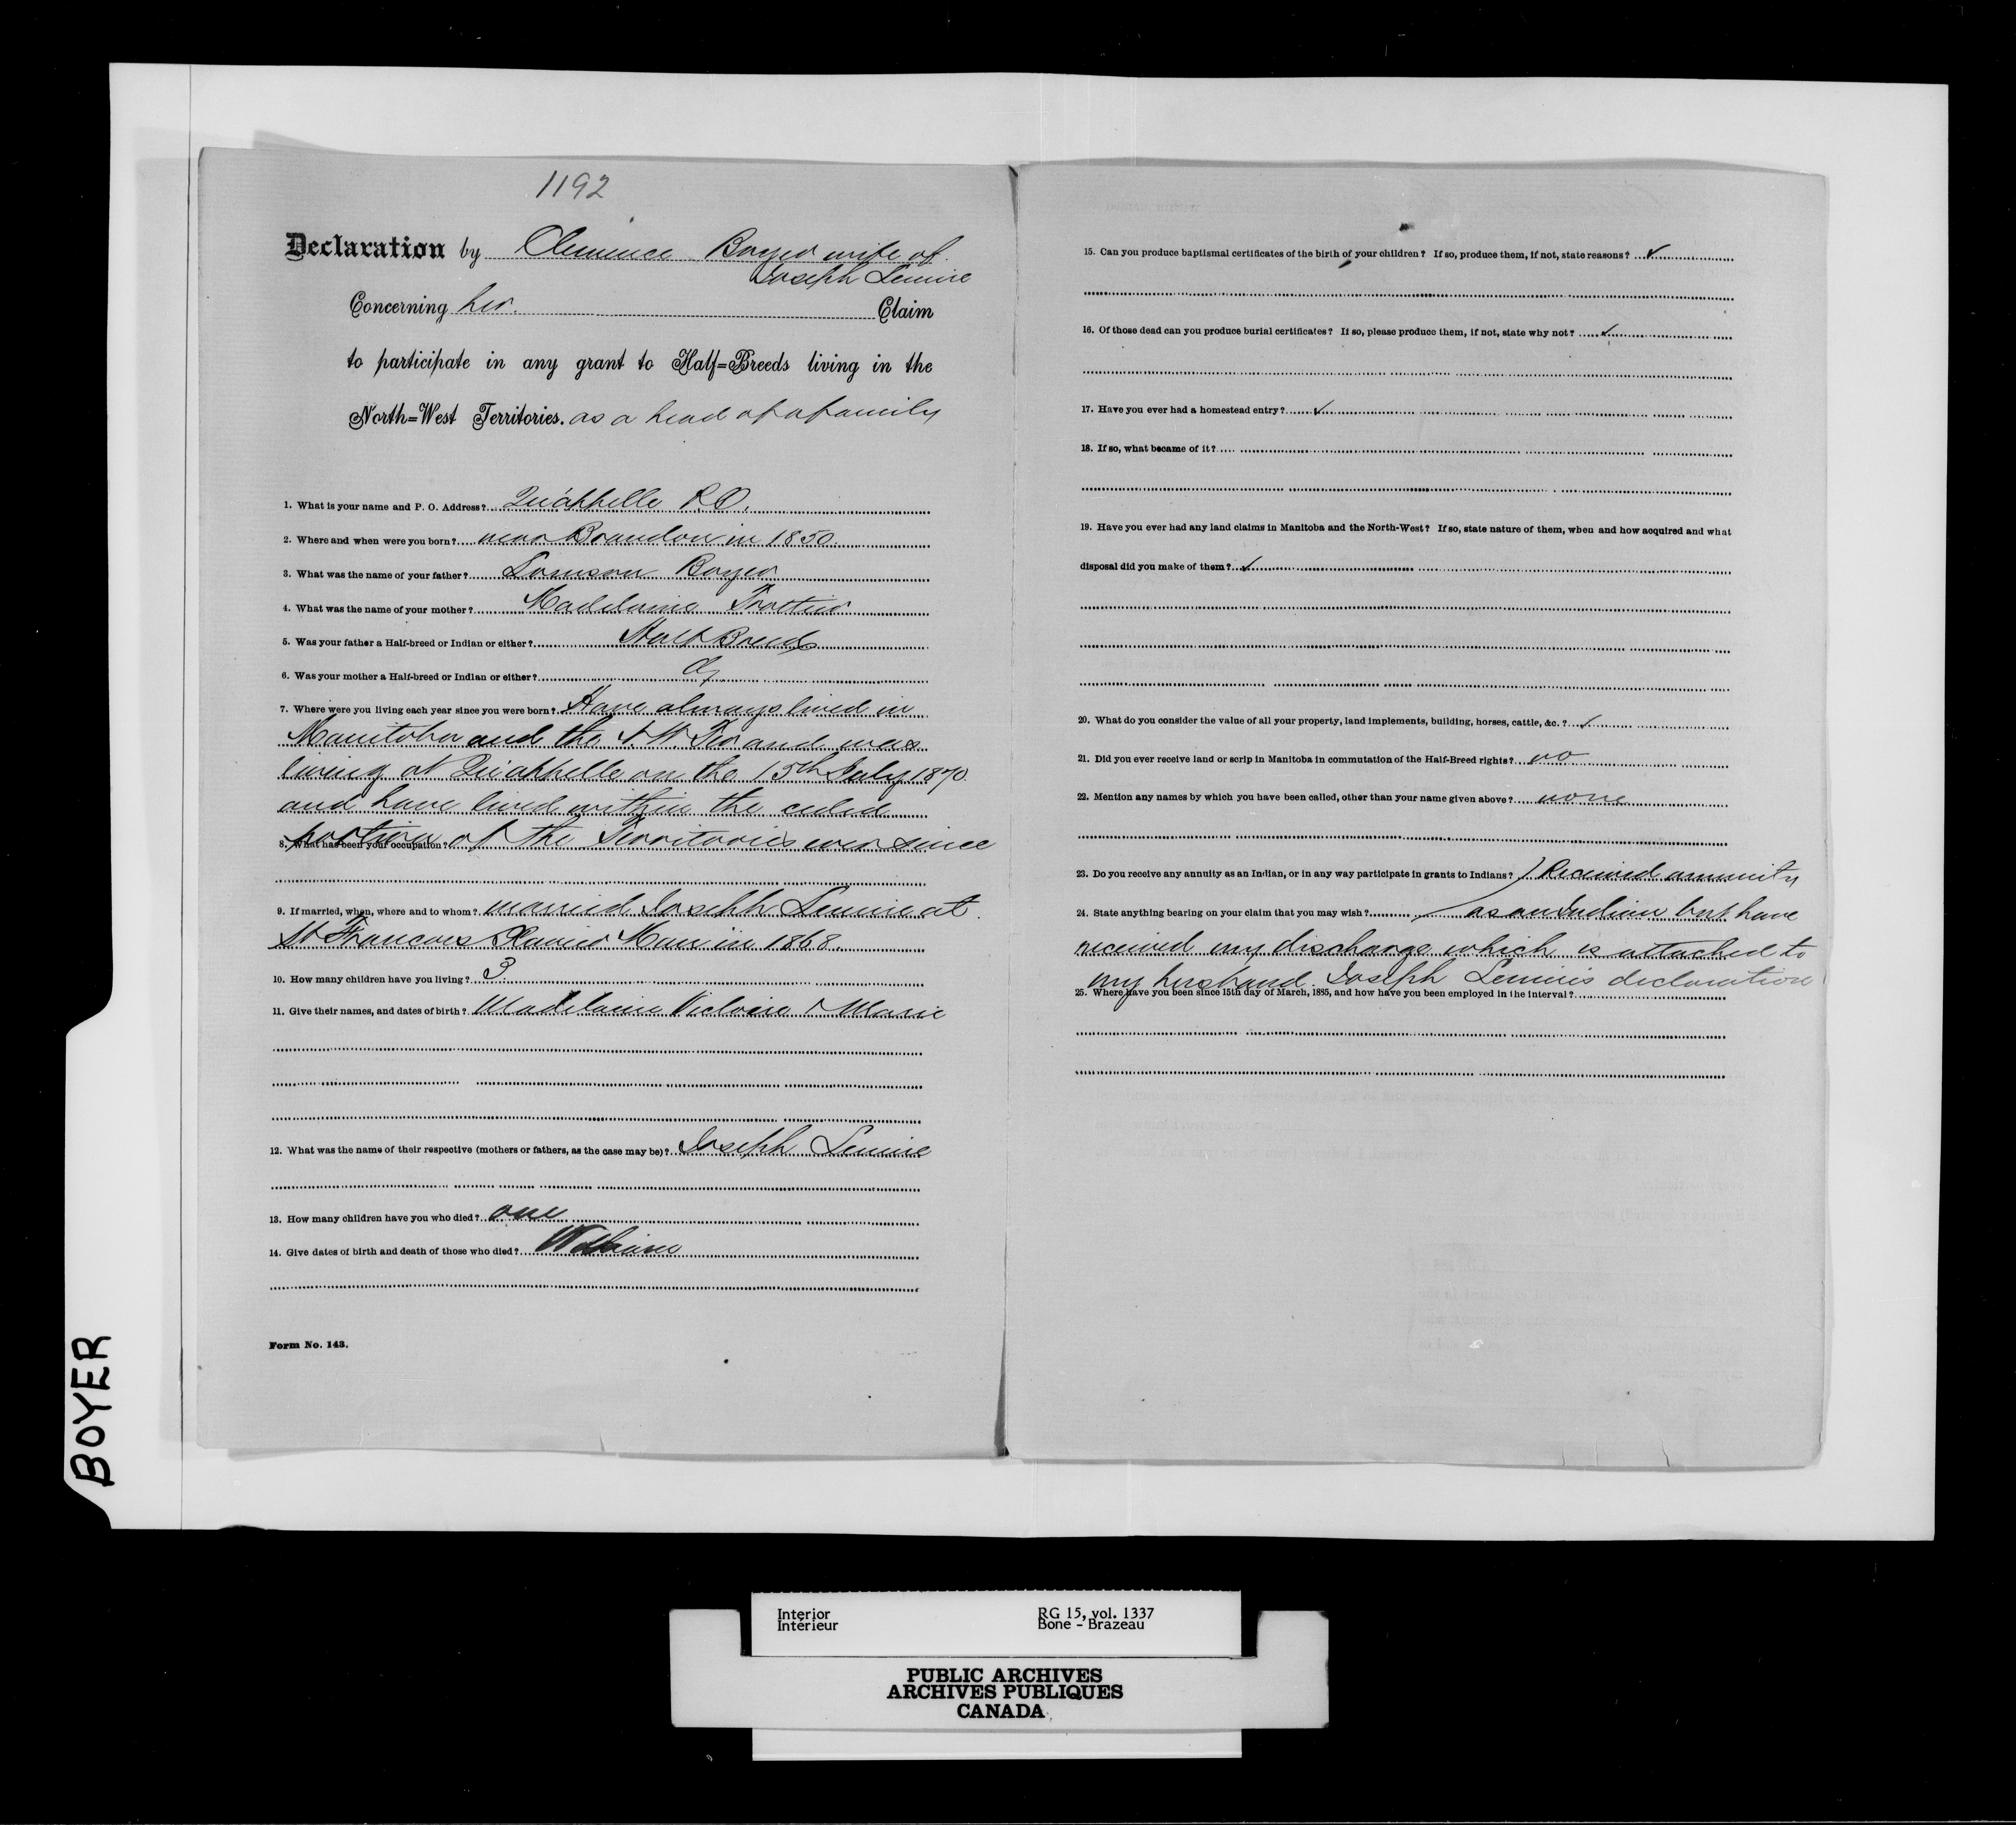 1192
Declaration by Clemence Boyer wife of
Joseph Lemire
Concerning her. Claim
to participate in any grant to Half=Breeds living in the
North=West Territories. as a head of a family
1. What is your name and P. O. Address? Qu'appelle P.O.
2. Where and when were you born? near Brandon in 1850.
3. What was the name of your father? Boyer
4. What was the name of your mother? Madelaine Trottier
5. Was your father a Half-breed or Indian or either? Half Breed
6. Was your mother a Half-breed or Indian or either?
7. Where were you living each year since you were born? Have always lived in
Manitoba and the N.W. Ter and was
living at Qu'appelle on the 15th July 1870.
and have lived within the ceded
portion of the Territories ever since
8. What has been your occupation?
9. If married, when, where and to whom? married Joseph Lemire at
St Francois Xavier Man in 1868.
10. How many children have you living? 3.
11. Give their names, and dates of birth? Madelaine Victoire & Marie
12. What was the name of their respective (mothers or fathers, as the case may be)? Joseph Lemire
13. How many children have you who died? one
14. Give dates of birth and death of those who died?
Form No. 143.
15. Can you produce baptismal certificates of the birth of your children? If so, produce them, if not, state reasons? ✓
16. Of those dead can you produce burial certificates? If so, please produce them, if not, state why not? ✓
17. Have you ever had a homestead entry? ✓
18. If so, what became of it?
19. Have you ever had any land claims in Manitoba and the North-West? If so, state nature of them, when and how acquired and what
disposal did you make of them? ✓
20. What do you consider the value of all your property, land implements, building, horses, cattle, &c. ? ✓
21. Did you ever receive land or scrip in Manitoba in commutation of the Half-Breed rights? no
22. Mention any names by which you have been called, other than your name given above? none
23. Do you receive any annuity as an Indian, or in any way participate in grants to Indians? Received annuity
24. State anything bearing on your claim that you may wish? as an Indian but have
received my discharge which is attached to
my husband Joseph Lemire's declaration
25. Where have you been since 15th day of March, 1885, and how have you been employed in the interval?
BOYER
Interior RG 15, vol. 1337
Intérieur Bone - Brazeau
PUBLIC ARCHIVES
ARCHIVES PUBLIQUES
CANADA